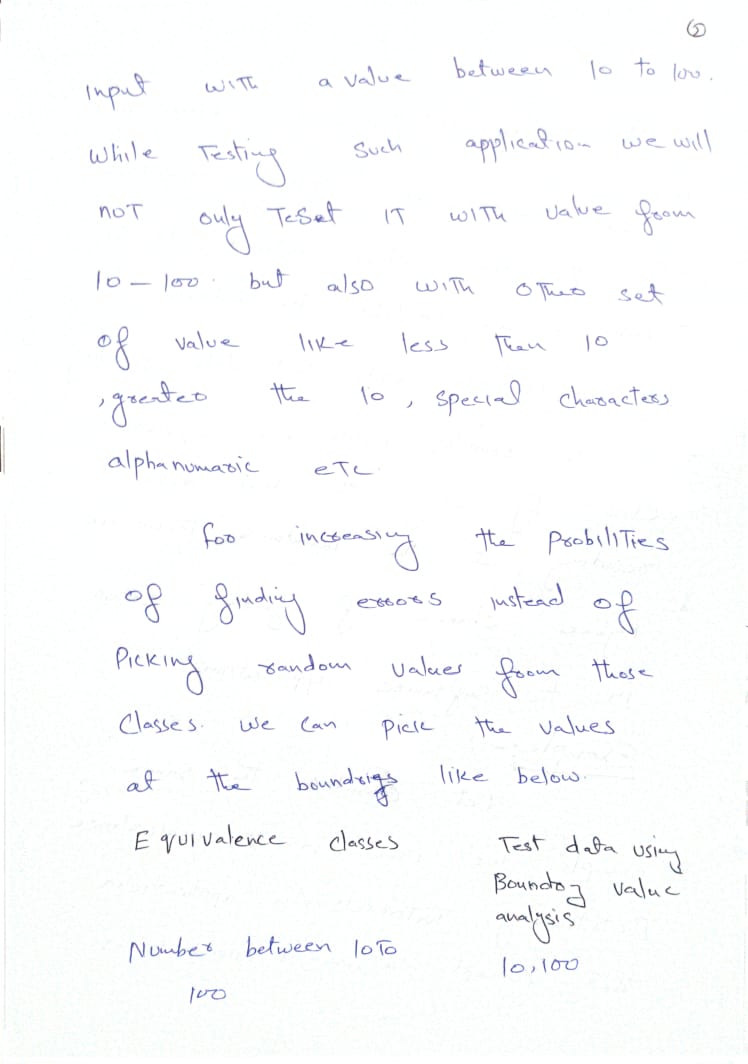 2
Input with a value between 10 to 100.
While Testing Such application we will
not only Teset IT with value from
10 - 100. but also with other set
of value like less then 10
, greater the 10, special characters
alphanumaric etc
for increasing the Probilities
of finding errors instead of
Picking random values from those
Classes. we can pick the values
at the boundries like below.
Equivalence classes Test data using
Boundry value
analysis
Number between 10 To 10,100
100